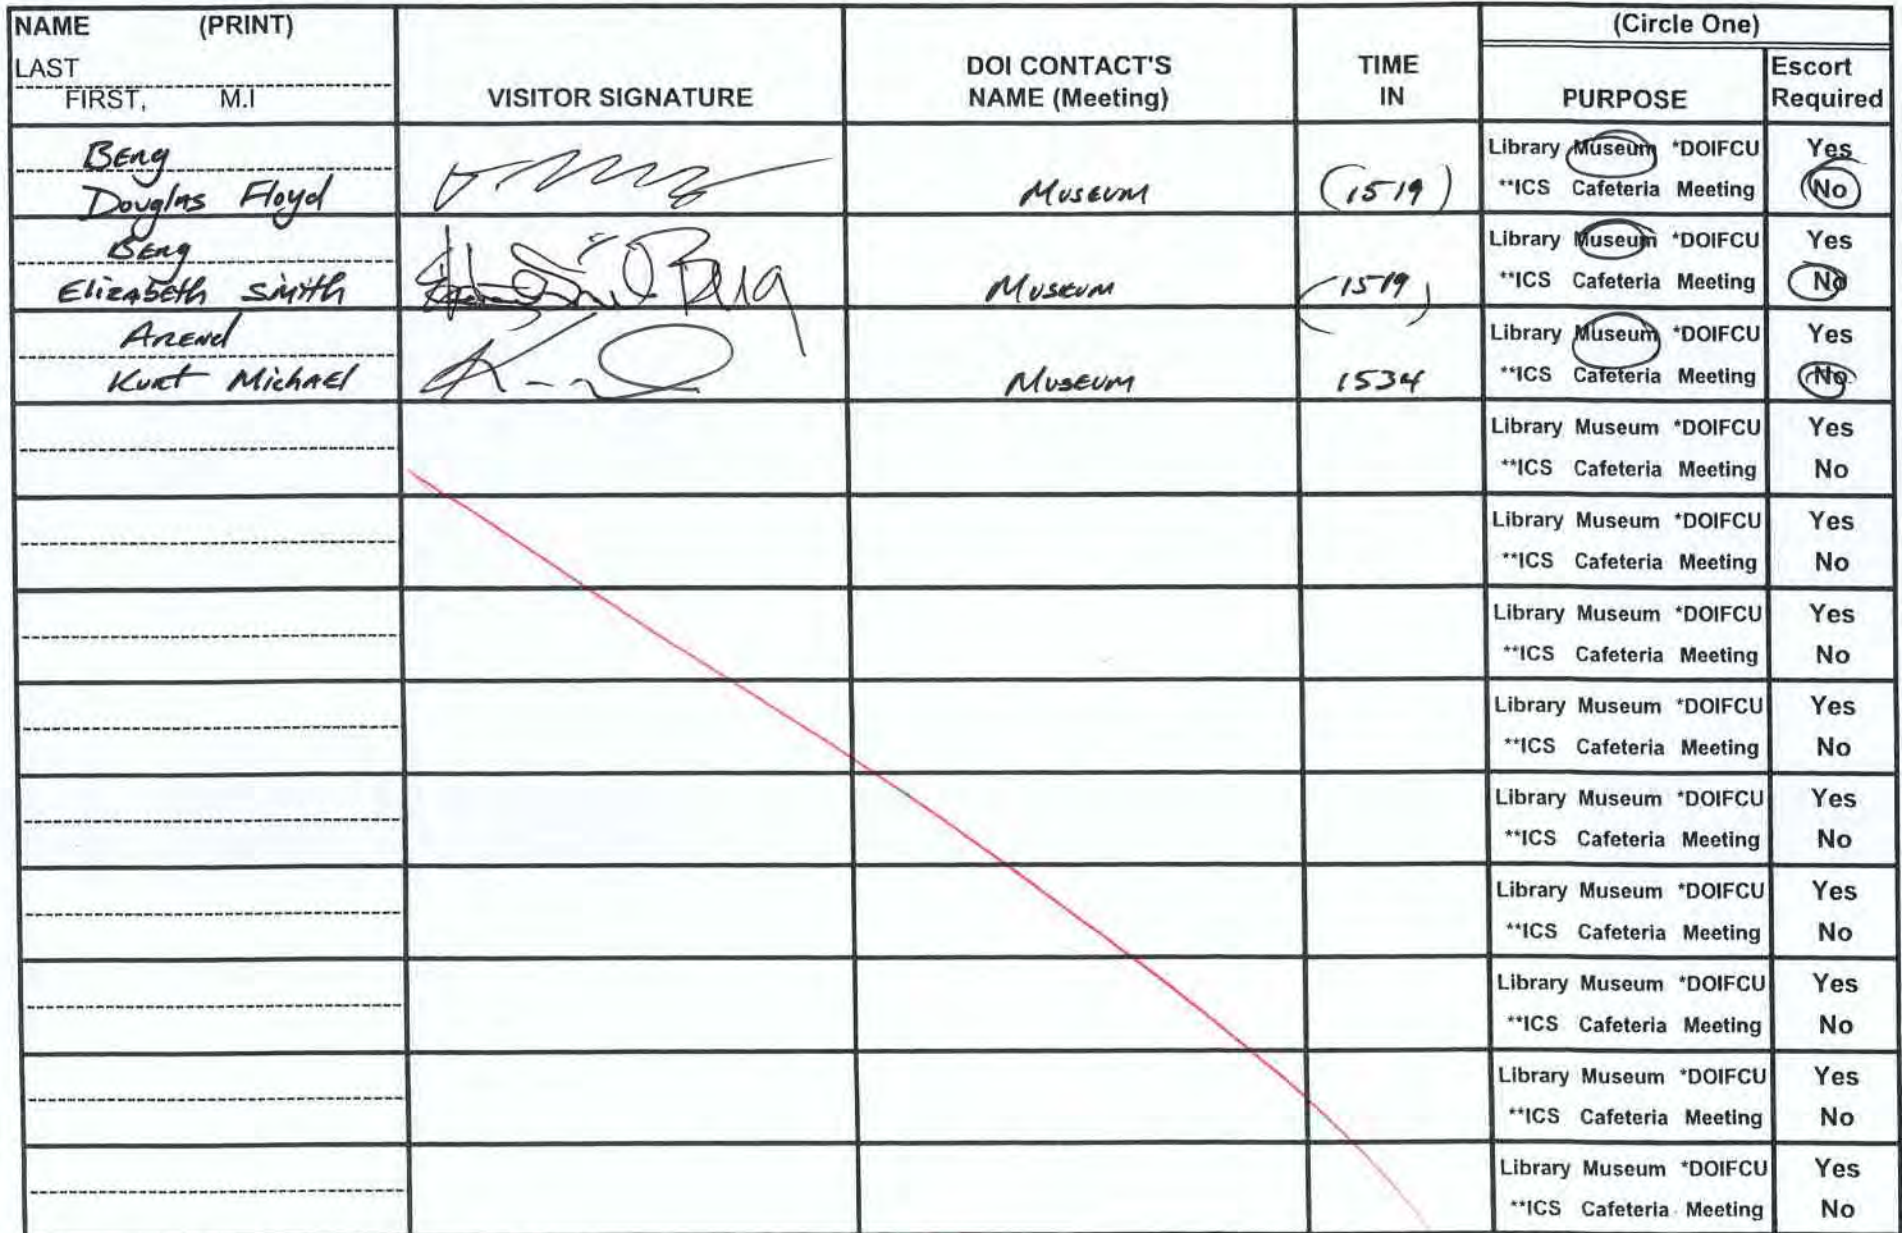 NAME (PRINT)
LAST
FIRST, M.I
VISITOR SIGNATURE
DOI CONTACT'S
NAME (Meeting)
TIME
IN
(Circle One)
PURPOSE
Escort
Required
Beng
Douglas Floyd
Museum
(1519)
Library Museum *DOIFCU Yes
**ICS Cafeteria Meeting No
Beng
Elizabeth Smith
Museum
(1519)
Library Museum *DOIFCU Yes
**ICS Cafeteria Meeting No
Arend
Kurt Michael
Museum
1534
Library Museum *DOIFCU Yes
**ICS Cafeteria Meeting No
Library Museum *DOIFCU Yes
**ICS Cafeteria Meeting No
Library Museum *DOIFCU Yes
**ICS Cafeteria Meeting No
Library Museum *DOIFCU Yes
**ICS Cafeteria Meeting No
Library Museum *DOIFCU Yes
**ICS Cafeteria Meeting No
Library Museum *DOIFCU Yes
**ICS Cafeteria Meeting No
Library Museum *DOIFCU Yes
**ICS Cafeteria Meeting No
Library Museum *DOIFCU Yes
**ICS Cafeteria Meeting No
Library Museum *DOIFCU Yes
**ICS Cafeteria Meeting No
Library Museum *DOIFCU Yes
**ICS Cafeteria Meeting No